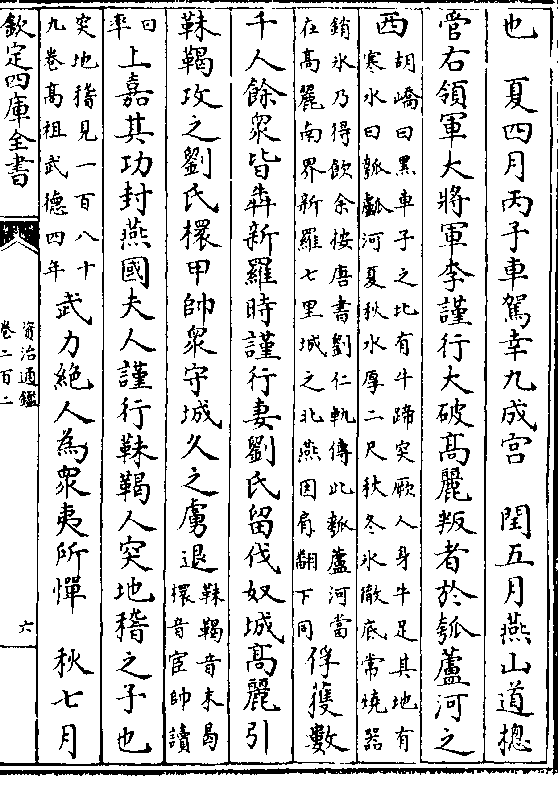 也　夏四月丙子車駕幸九成宮　閏五月燕山道摠
管右領軍大將軍李謹行大破髙麗叛者於瓠蘆河之
西胡嶠曰黒車子之北有牛蹄突厥人身牛足其地有
寒水曰瓠𤬛河夏秋水厚二尺秋冬氷徹底常燒器
銷氷乃得飲余按唐書劉仁軌傳此瓠蘆河當
在髙麗南界新羅七里城之北燕因肩翻下同俘獲數
千人餘衆皆犇新羅時謹行妻劉氏留伐奴城髙麗引
靺鞨攻之劉氏擐甲帥衆守城久之虜退靺鞨音末曷
擐音宦帥讀
曰率上嘉其功封燕國夫人謹行靺鞨人突地稽之子也
突地稽見一百八十
九卷髙祖武德四年武力絶人為衆夷所憚　秋七月
欽定四庫全書
資治通鑑
卷二百二
六